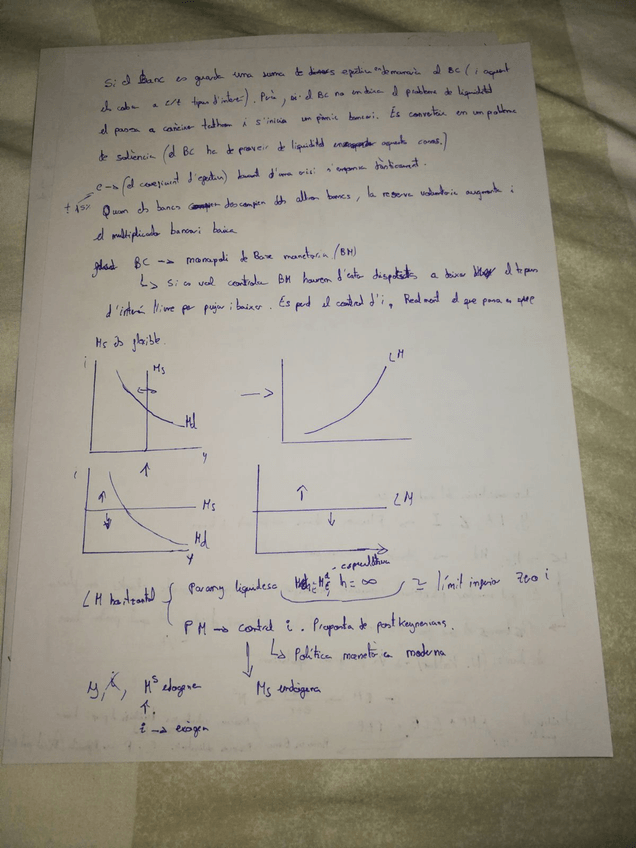 Si el Banc es guarda una suma de demanaria al BC (i aquest
el cobra a c/t tipus d'interès). Però, si el BC no endivina el problema de liquiditat
el passa a conèixer tothom i s'inicia un pànic bancari. És converteix en un problema
de solvència (el BC ha de proveir de liquiditat aquests casos.)
c → (el coeficient d'efectiu) durant d'una crisi s'expansa dràsticament.
Quan els bancs desconfien dels altres bancs, la reserva voluntaria augmenta i
el multiplicador bancari baixa
BC → monopoli de Base monetaria (BM)
↳ Si es vol controlar BM haurem d'estar disposats a deixar el tipus
d'interès lliure per pujar i baixar. Es perd el control d'i, Realment el que passa es que
Ms és flexible.
i Ms Md y
→ LM
i Ms Md y
LM
LM horitzontal { Parany liquidesa h = ∞ - especulativa ≃ límit inferior Zero i
PM → control i. Proposta de postkeynesians.
↳ Política monetària moderna
y, i, M^s Ms endògena
↑
i → exògen